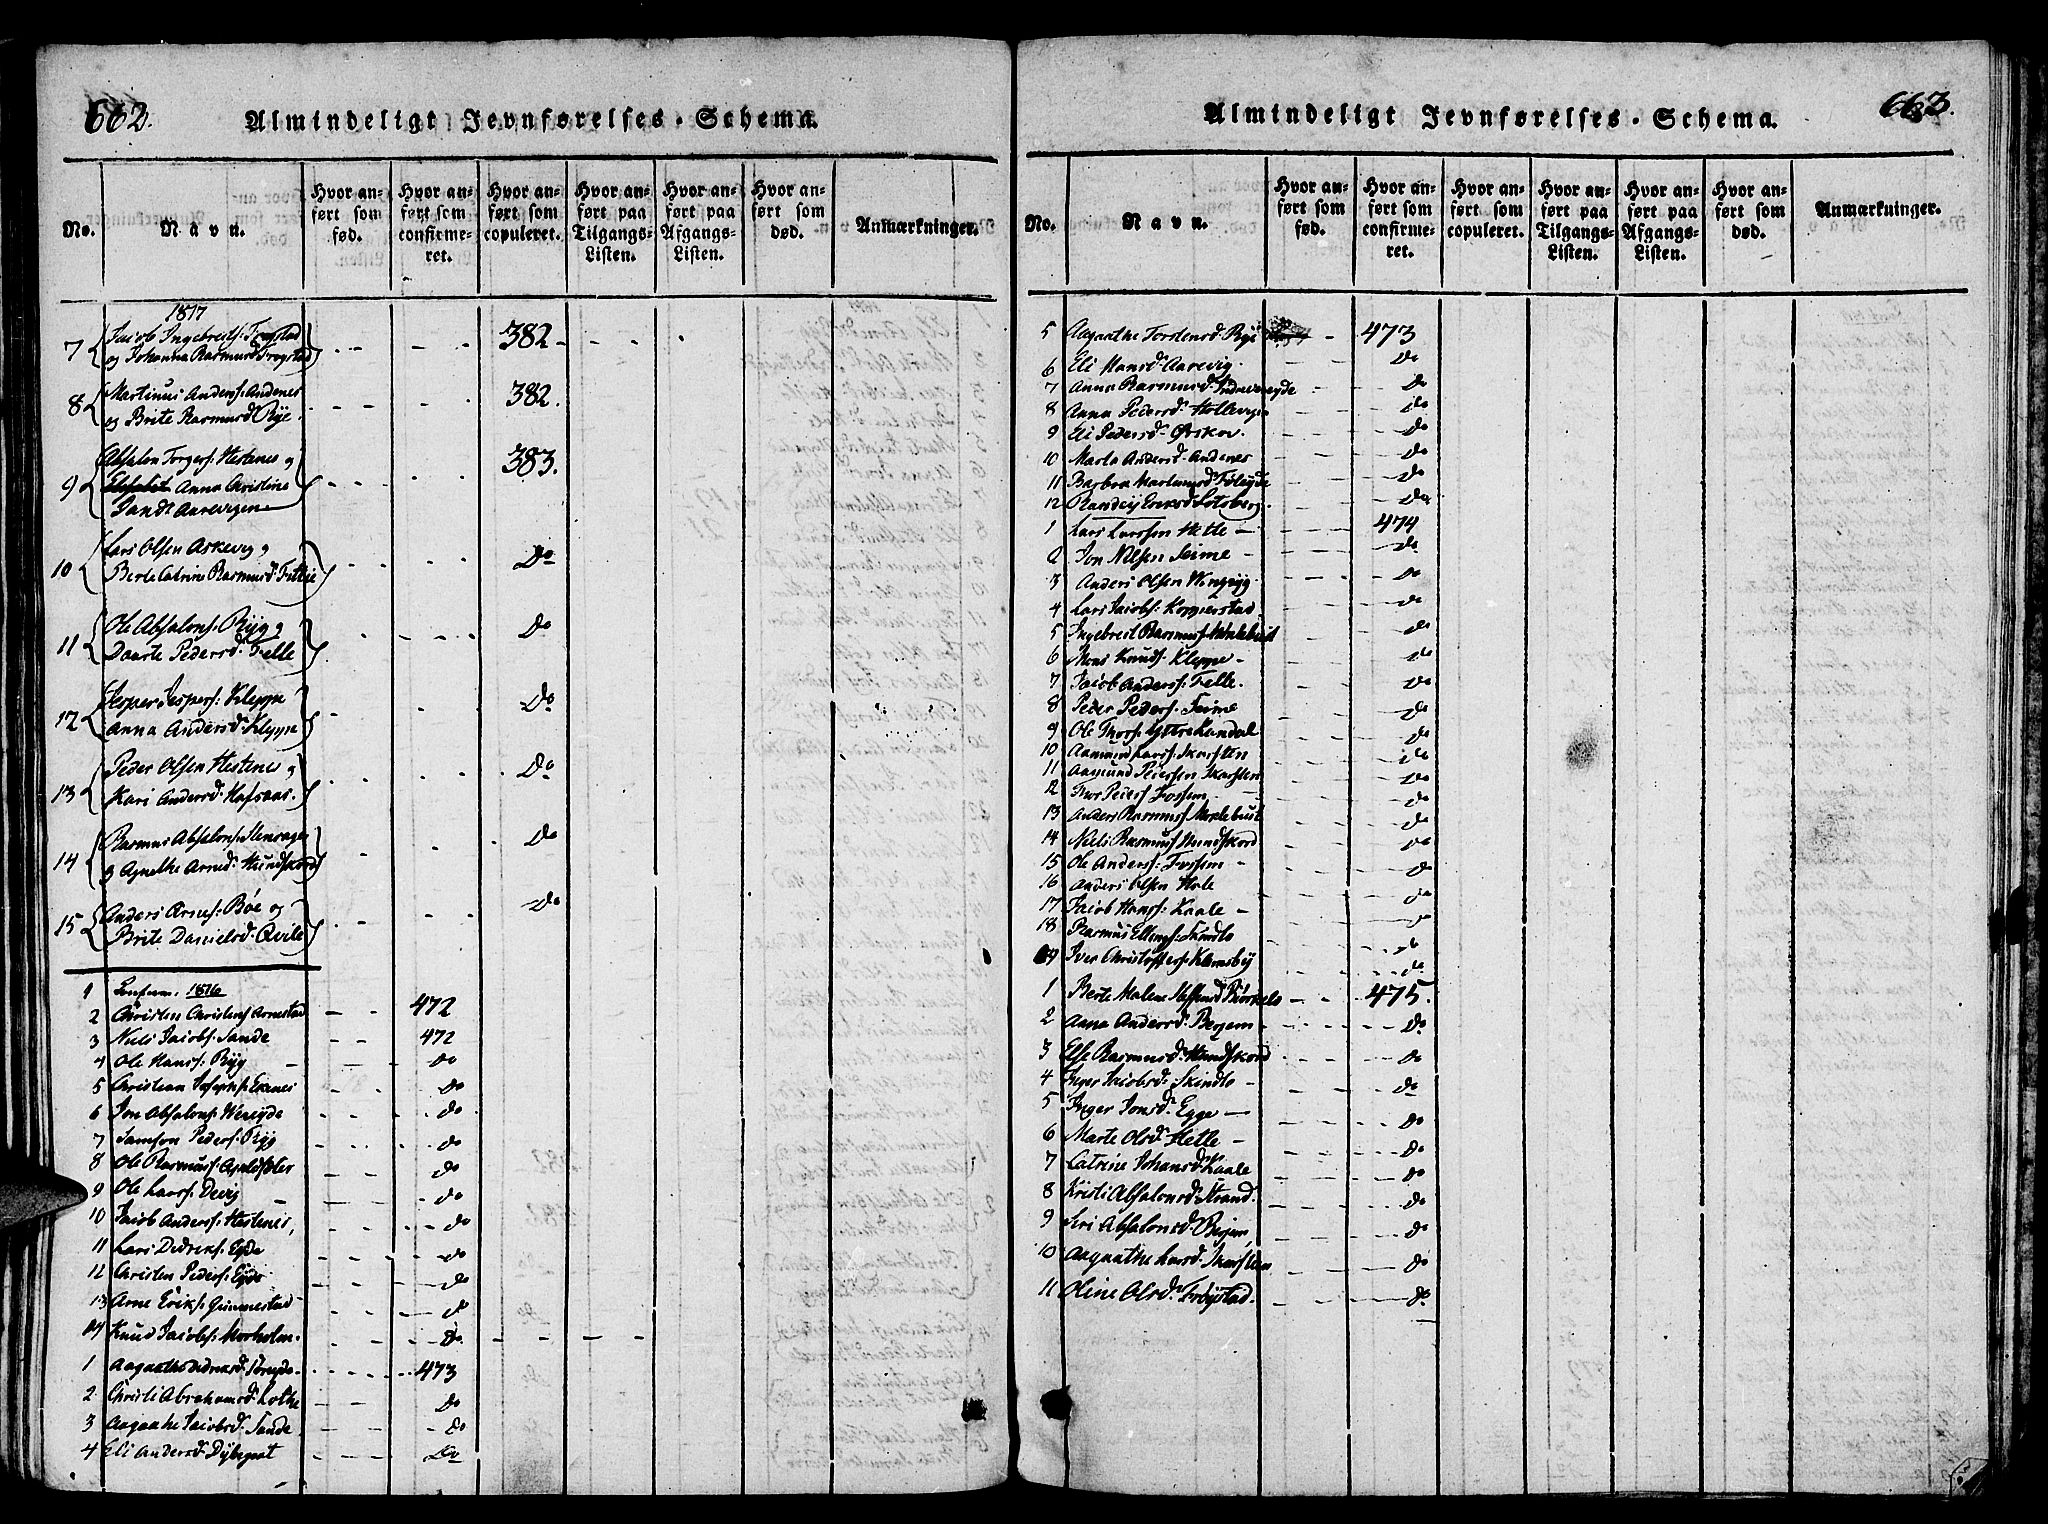 662.
Almindeligt Jevnførelses-Schema.
No.
Navn.
Hvor anført som fød.
Hvor anført som confirmeret.
Hvor anført som copuleret.
Hvor anført paa Tilgangs-Listen.
Hvor anført paa Afgangs-Listen.
Hvor anført som død.
Anmærkninger.
1817
7 Jacob Ingebretss: Frøystad
og Johanna Rasmusd Frøystad 382
8 Martinus Anderss: Andenes
og Brite Rasmusd Rye 382.
9 Absalon Torgers: Hestenes og
Anna Christine
Sandr Aarevigen 383.
10 Lars Olsen Askevig og
Berte Catrine Rasmusd: Fittie Do
11 Ole Absalons: Ryg og
Daarte Pedersd: Felle Do
12 Jesper Jespers: Kleppe
Anna Andersd Kleppe Do
13 Peder Olsen Hestenes og
Kari Andersd Hafsaas. Do
14 Rasmus Absalons
og Agnethe Arnesd: Hundskord Do
15 Anders Arnes: Bøe og
Brite Danielsd: Qvile Do
1 Confirm. 1816
2 Christen Christens Arnestad 472
3 Niels Jacobs: Sande 472
4 Ole Hanss: Ryg do
5 Christian Josephs: Exenes do
6 Jon Absalons: Wereyde do
7 Samson Peders: Ryg do
8 Ole Rasmuss: do
9 Ole Larss: Devig do
10 Jacob Anderss: Hestenes do
11 Lars Didriks: Eyde do
12 Christen Peders: Eyde do
13 Arne Eriks: Gimmestad do
14 Knud Jacobs: Morholm. do
1 Aagaathe 473
2 Christi Abrahamsd: Lothe do
3 Aagaathe Jacobsd: Sande do
4 Eli Andersd: do
663.
Almindeligt Jevnførelses-Schema.
No.
Navn.
Hvor anført som fød.
Hvor anført som confirmeret.
Hvor anført som copuleret.
Hvor anført paa Tilgangs-Listen.
Hvor anført paa Afgangs-Listen.
Hvor anført som død.
Anmærkninger.
5 Aagaathe Torstensd: Rye 473
6 Eli Hansd: Aarevig do
7 Anna Rasmusd: do
8 Anna Pedersd: do
9 Eli Pedersd: Ørskov. do
10 Marta Andersd: Andenes do
11 Barbra do
12 Randey Eriksd: Lotsberg. do
1 Lars Larssen Hetle 474
2 Jon Nilsen Seime do
3 Anders Olsen do
4 Lars Jacobs: Kopperstad. do
5 Ingebreit Rasmuss: Morlebust do
6 Mons Knuds: Kleppe do
7 Jacob Anderss: Felle. do
8 Peder Peders: Seime do
9 Ole Thorss: do
10 Aamund Larss: Skarsten do
11 Aamund Pedersen Skarsten do
12 Thor Peders Fossem do
13 Anders Rasmuss Morlebust do
14 Niels Rasmuss Hundskord do
15 Ole Anderss: Fossem do
16 Anders Olsen Hole do
17 Jacob Hanss: Kaale do
18 Rasmus Ellings: Skindlo do
19 Iver Christoffers: do
1 Berte Malene Steffensd Biørkelo 475.
2 Anna Andersd: Berjem do
3 Else Rasmusd: Hundskord do
4 Inger Jacobsd: Skindlo do
5 Inger Jonsd: Egge do
6 Marte Olsd: Hetle do
7 Catrine Johansd: Kaale do
8 Kristi Absalonsd: Strand. do
9 Siri Absalonsd: Berjem do
10 Aagaathe Larsd: Skarsten do
11 Oline Olsd: Frøystad. do